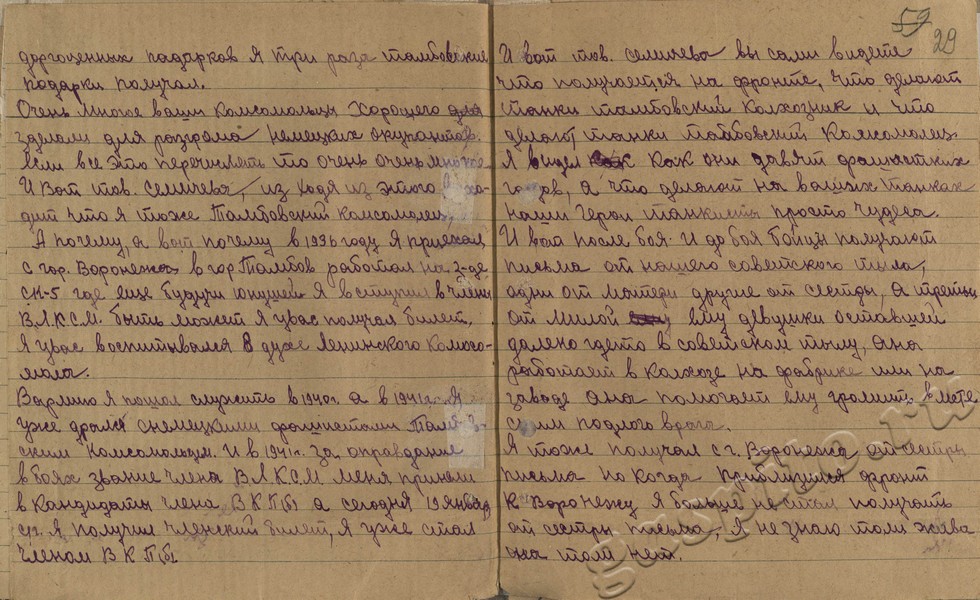 драгоценных падарков я три раза тамбовские
подарки получал.
Очень многое ваши Комсомольцы хорошего для
зделали для разгрома немецких окупантов
если все это перечислять то очень очень многое
И вот тов. Селичева, из ходя из этого выхо-
дит что я тоже Тамбовский комсомолец,
А почему, а вот почему в 1936 году я приехал
с гор. Воронежа в гор Тамбов работал на
СК-5 где еще будучи юнушей я вступил в члены
В.Л.К.С.М. быть может я увас получал билет,
я увас воспитывался в духе Ленинского Комсо-
мола.
Вармию я пошол служить в 1940г. а в 1941г. я
уже дрался снемецкими фашистами Тамбов-
ским Комсомольцем. И в 1941г. за оправдание
в боях звание члена В.Л.К.С.М меня приняли
в кандидаты члена В К П(б) а сегодня 19 января
с.г. я получил членский билет, я уже стал
членом В К П(б).
59
29
И вот тов. Селичева вы сами видете
что получается на фронте, что делают
танки тамбовский Колхозник и что
делают танки Тамбовский Комсомолец
я видел как они давят фашистских
гадов, а что делают на ваших танках
наши Герои танкисты просто чудеса.
И вот после боя и до боя бойцы получают
письма от нашего советского тыла,
одни от матери другие от сестры, а третьи
от милой ему девушки оставшей
далеко гдето в советском тылу, она
работает в колхозе на фабрике или на
заводе она помогает ему громить вместе
снами подлого врага.
Я тоже получал с г. Воронежа от сестры
письма но когда приблизился фронт
к Воронежу я больше не стал получать
от сестры письма, я не знаю толи жева
она толи нет.
gaspito.ru